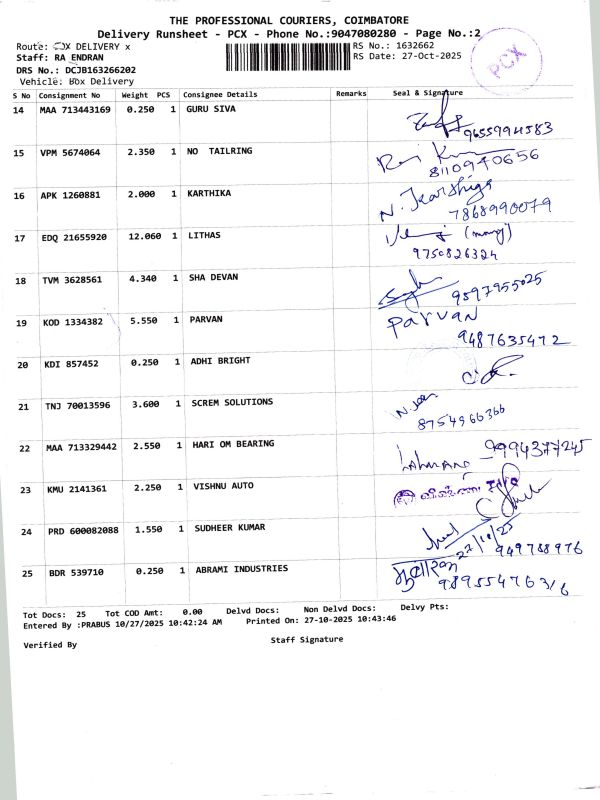 THE PROFESSIONAL COURIERS, COIMBATORE
Delivery Runsheet - PCX - Phone No.:9047080280 - Page No.:2
Route: BOX DELIVERY x RS No.: 1632662
Staff: RA ENDRAN RS Date: 27-Oct-2025
DRS No.: DCJB163266202
Vehicle: Box Delivery
PCX
S No Consignment No Weight PCS Consignee Details Remarks Seal & Signature
14 MAA 713443169 0.250 1 GURU SIVA
15 VPM 5674064 2.350 1 NO TAILRING
8110940656
16 APK 1260881 2.000 1 KARTHIKA
7868990079
17 EDQ 21655920 12.060 1 LITHAS
9750826324
18 TVM 3628561 4.340 1 SHA DEVAN
9597955025
19 KOD 1334382 5.550 1 PARVAN
PARVAN
9487635472
20 KDI 857452 0.250 1 ADHI BRIGHT
21 TNJ 70013596 3.600 1 SCREM SOLUTIONS
8754966366
22 MAA 713329442 2.550 1 HARI OM BEARING
9994377245
23 KMU 2141361 2.250 1 VISHNU AUTO
24 PRD 600082088 1.550 1 SUDHEER KUMAR
25 BDR 539710 0.250 1 ABRAMI INDUSTRIES
Tot Docs: 25 Tot COD Amt: 0.00 Delvd Docs: Non Delvd Docs: Delvy Pts:
Entered By :PRABUS 10/27/2025 10:42:24 AM Printed On: 27-10-2025 10:43:46
Staff Signature
Verified By